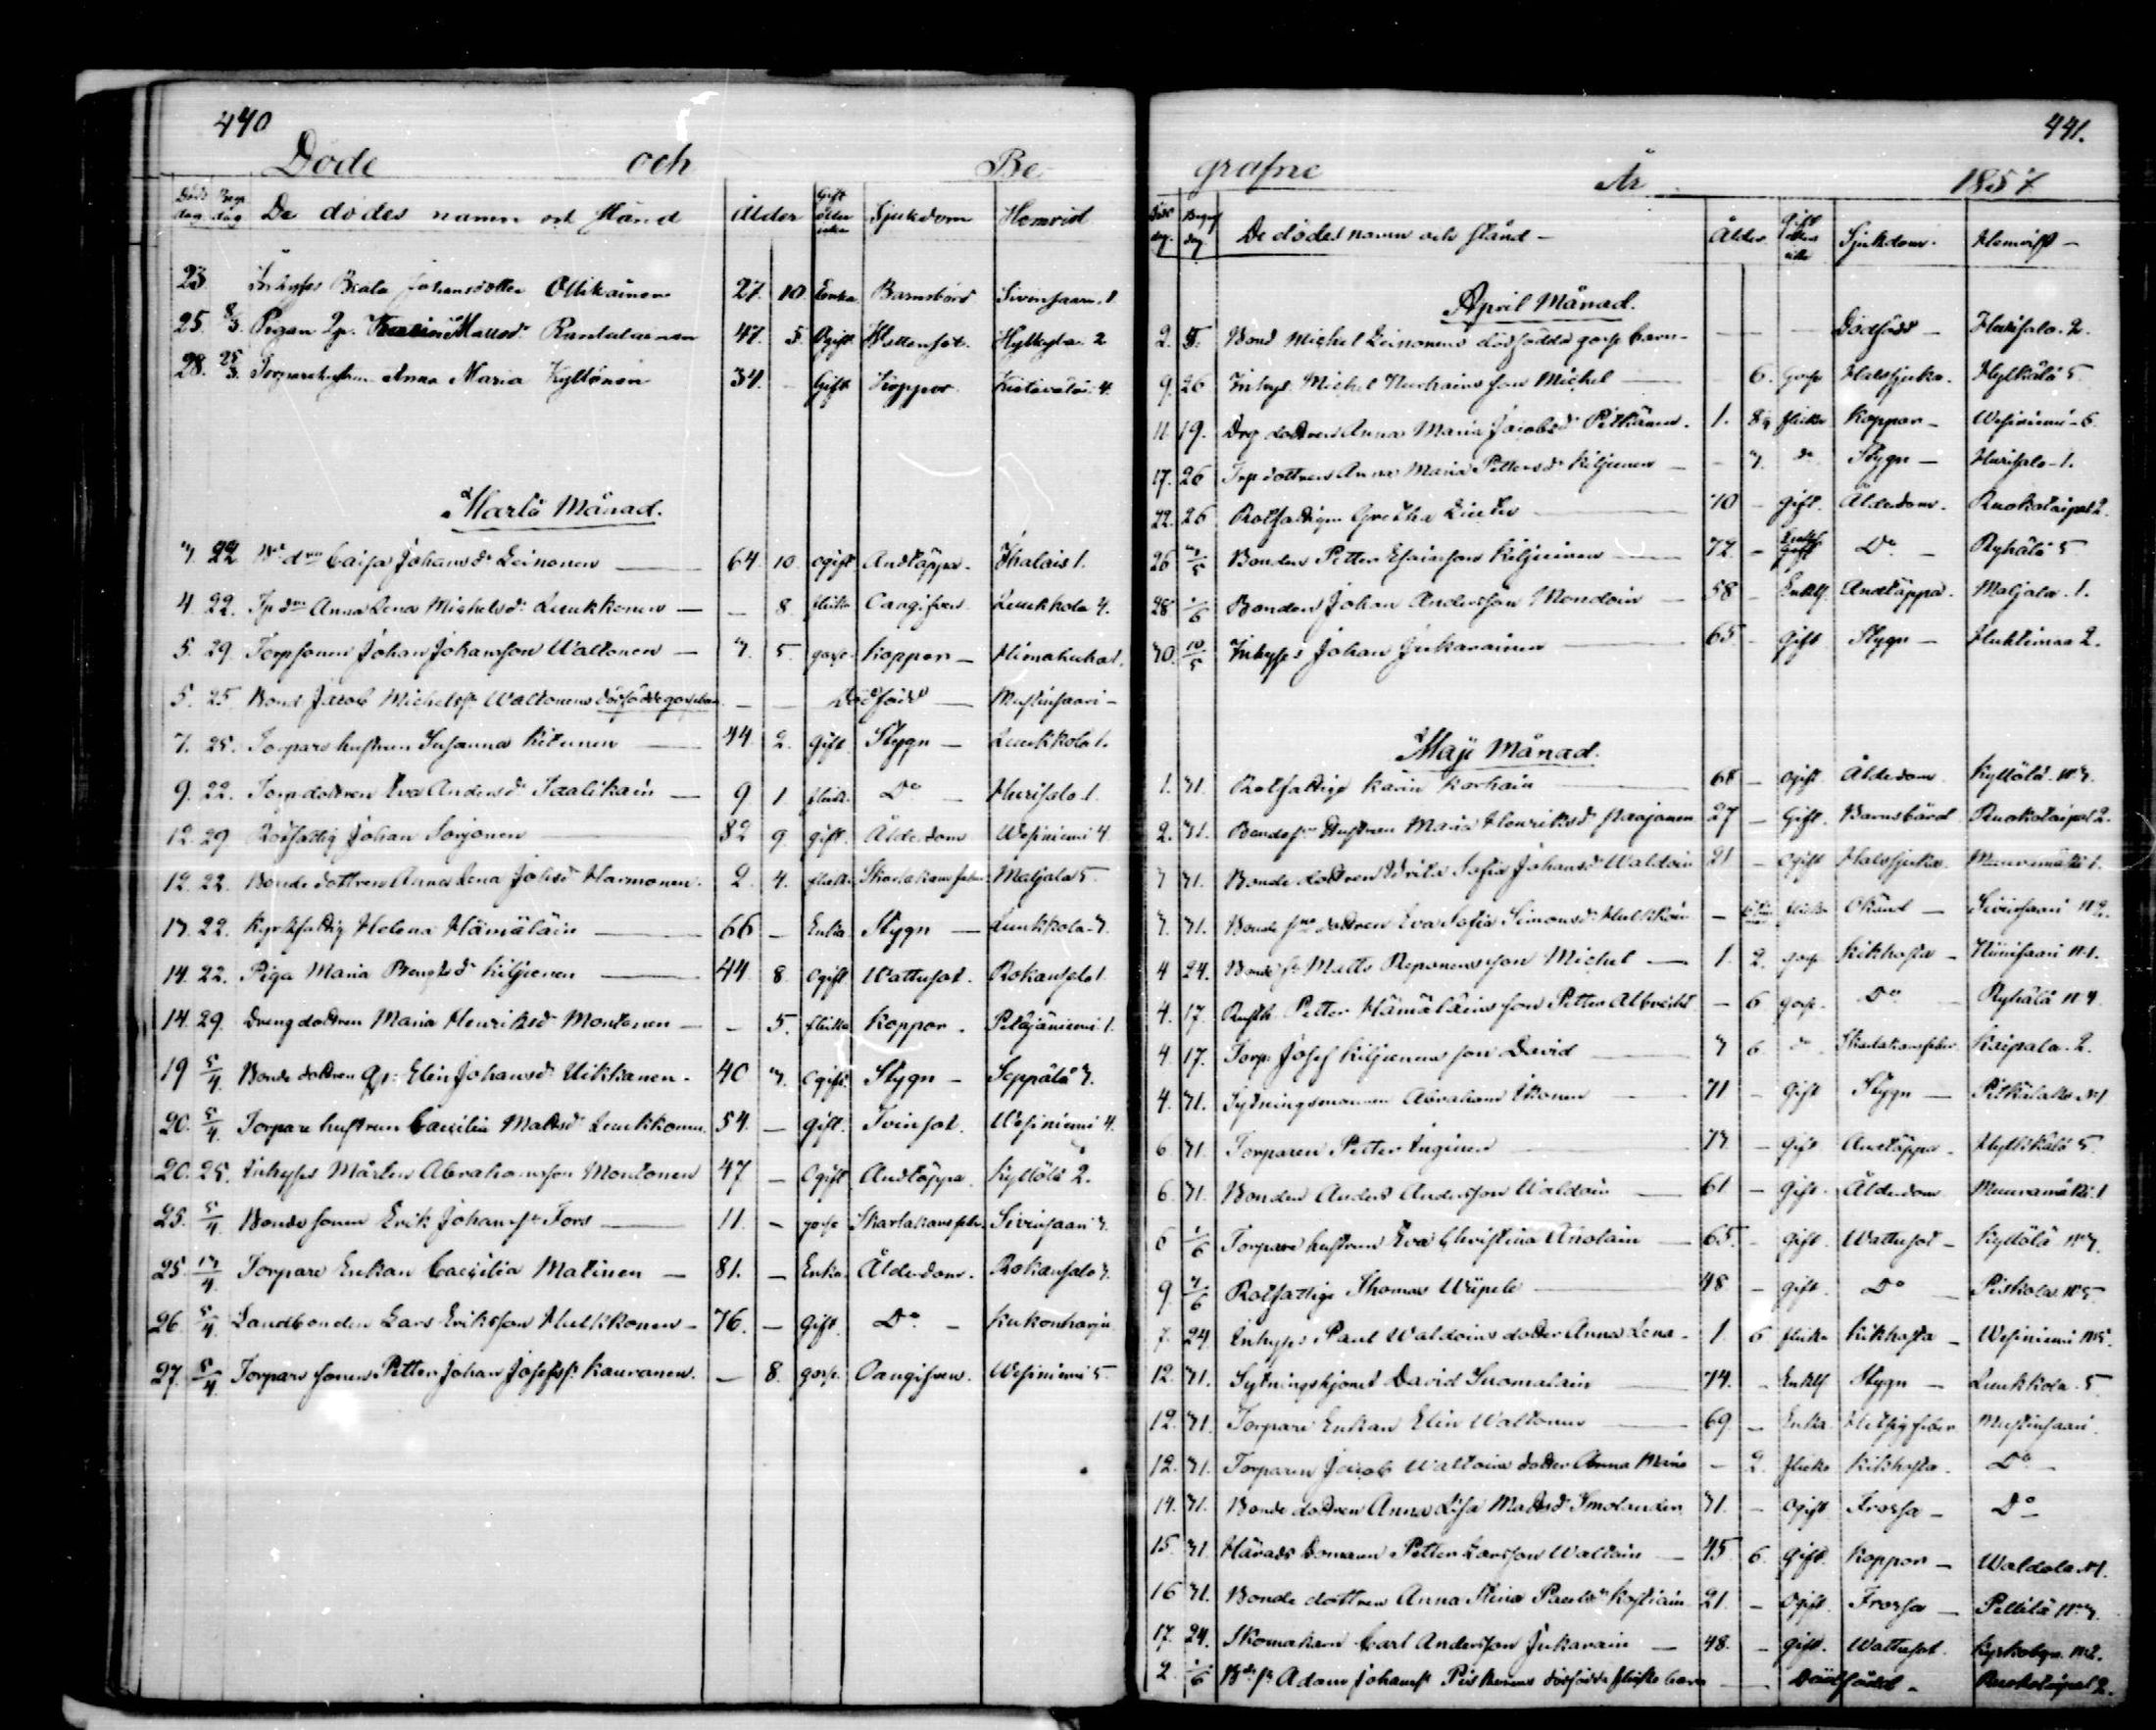 440
Döde och Be
Döds dag Begr. dag De dödes namn och stånd Ålder Gift eller enka Sjukdom Hemvist
23 Inhyses Beata Johansdotter Ollikainen 27. 10. Enka Barnsbörd Sivinsaari 1
25. 8/3. Pigan Mattsdr Rantalainen 47. 5. Ogift Hylkylä 2
28. 25/3. Torparehustrun Anna Maria Kyllönen 34. - Gift Koppor 4.
Martii Månad.
3. 22 Caisa Johansdr Leinonen 64. 10. ogift Andtäppa. 1.
4. 22. Tp dr Anna Lena Michelsdr Luukkonen — 8. flicka Oangifven Luukkola 4.
5. 29. Torpsonen Johan Johansson Waltonen — 3. 5. gosse Koppor — Himahuha 1.
5. 25 Bond Jacob Michelss. Waltonens dödfödde gossebarn — — Dödfödd — Mustinsaari —
7. 25. Torpare hustrun Susanna Kitunen — 44. 2. Gift. Stygn — Luukkola 1.
9. 22. Torpdottren Eva Andersdr Taalikain — 9 1. flicka Do — Hurisalo 1.
12. 29 Rotfattig Johan Sorjonen — 82 9. gift. Ålderdom Wesiniemi 4
12. 22. Bonde dottren Anna Lena Johsdr Harmonen. 2. 4. flicka Skarlakansfeber Matjala 5
13. 22. Kyrkfattig Helena Hämäläin — 66 — Enka Stygn — Luukkola 3.
14. 22. Piga Maria Bengtsdr Kiljunen — 44. 8. Ogift Wattusot. Rokansalo 1
14. 29 Dreng dottren Maria Henriksdr Montonen — — 5. flicka Koppor. Petäjäniemi 1.
19 5/4. Bonde dottren Qp. Elin Johansdr Uikkanen. 40 3. Ogift. Stygn — Seppälä 3.
20. 5/4. Torpare hustrun Caecilia Mattsdr Luukkonen. 54. — gift. Tvinsot. Wesiniemi 4.
20. 25. Inhyses Mårten Abrahamsson Montonen 47 — Ogift Andtäppa. Kyllölä 2.
25. 5/4. Bonde sonen Erik Johanss. Fors — 11. — gosse Skarlakansfeb. Sivinsaari 3.
25. 13/4. Torpare Enkan Caecilia Matinen — 81. — Enka. Ålderdom. Rokansalo 3.
26. 5/4. Landbonden Lars Eriksson Hulkkonen — 76. — Gift. Do — Kukonharju
27. 5/4. Torpare sonen Petter Johan Josefss. Kauranen. — 8. gosse. Oangifven. Wesiniemi 5.
441.
grafne År 1857
Döds dag. Begraf dag De dödes namn och stånd — Ålder Gift eller Sjukdom. Hemvist —
April Månad.
2. 5. Bond Michel Leinonens dödfödde gosse barn — — — Dödfödd — Hurisalo. 2.
9. 26 Inhys. Michel son Michel — — 6. Gosse Halssjuka. Hylkälä 5
11. 19. Drg dottren Anna Maria Jacobsdr Pitkänen. 1. flicka Koppor — Wesiniemi 6.
17. 26 Trp dottren Anna Maria Pettersdr Kiljunen — — 3. do Stygn — Hurisalo 1.
22. 26 Rotfattigen Gretha — 70 — gift. Ålderdom. Ruokolaipal 2.
26 3/5 Bonden Petter Esaiasson Kiljunen — 72. — Enkl. Do — Ryhälä 5
28. 1/6 Bonden Johan Andersson Mondoin — 58 — Enklf. Andtäppa. Matjala. 1.
30. 10/5 Inhyses Johan Jukarainen — 65 — Gift. Stygn — Huktimaa 2.
Maji Månad.
1. 31. Rotfattige Karin Karhain — 68 — ogift. Ålderdom. Kyllölä. No 3.
2. 31. Hustrun Maria Henriksdr 27 — Gift. Barnsbörd Ruokolaipal 2.
3 31. Bonde dottren Sofia Johansdr Waldoin 21 — ogift Halssjuka. Muuramäki 1.
3. 31. Bonde dottren Eva Sofia Simonsdr Hulkkoin — flicka Okänd — Sivinsaari No 2.
4 24. Bonde Matts Reponens son Michel — 1. 2. gosse Kikhosta — Niinisaari No 1.
4. 17. Rusth. Petter Hämäläins son Petter Albrecht — 6 gosse. Do — Ryhälä No 4
4. 17. Torp. Josef Kiljunens son David — 3 6. do Skarlakansfeber Kaipala. 2.
4. 31. Sytningsmannen Abraham Ikonen — 71 — Gift Stygn — Pitkälaks No 1
6. 31. Torparen Petter Inginen — 73 — Gift Andtäppa. Hylkälä 5.
6. 31. Bonden Anders Andersson Waldoin — 61 — Gift. Ålderdom. Muuramäki. 1
6 1/6 Torpare hustrun Eva Christina Anolain — 65. — gift. Wattusot — Kyllölä No 3.
9 7/6 Rotfattige Thomas — 48 — gift. Do — Piskola No 5.
7. 24 Inhyses Paul Waldoins dotter Anna Lena — 1. 6 flicka Kikhosta — Wesiniemi No 5.
12. 31. Sytningshjonet David Suomalain — 74. — Enklf Stygn — Luukkola. 5.
12. 31. Torpare Enkan Elin Waltonen — 69. — Enka. Hetsig feber Mustinsaari.
12. 31. Torparen Jacob Waltoins dotter Anna Maria — 2. flicka Kikhosta. Do —
14. 31. Bonde dottren Anna Lisa Mattsdr Smolander 31. — Ogift. Frossa — Do —
15. 31. Härads Domaren Petter Larsson Waltoin — 45. 6. Gift. Koppor — Waldola No 1.
16 31. Bonde dottren Anna Stina Paulsdr Kostiain 21. — Ogift. Frossa — Pellilä No 3.
17. 24. Skomakaren Carl Andersson Jukarain — 48. — gift. Wattusot. Kyrkobyn No 2.
2. 1/6 Bde s. Adam Johanss. dödfödda flicke barn — Dödfödd — Ruokolaipal 2.